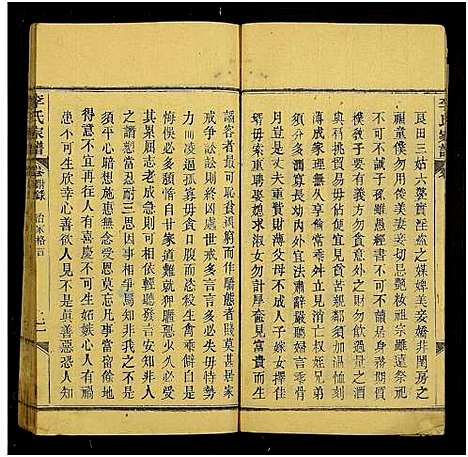 良田三姑六婆實淫盜之媒婢美妾嬌非閨房之
福童僕勿用俊美妻妾切忌艷妝祖宗雖遠祭祀
不可不誠子孫雖愚經書不可不讀居身務期儉
樸教子要有義方勿貪意外之財勿飲過量之酒
與肩挑貿易毋佔便宜見貧苦親鄰須加溫恤刻
薄成家理無久享倫常乖舛立見消亡兄弟叔姪
須分多潤寡長幼內外宜法肅辭嚴聽婦言乖骨
肉豈是丈夫重貲財薄父母不成人子嫁女擇佳
壻毋索重聘娶媳求淑女勿計厚奩見富貴而生
諂容者最可恥貧窮而作驕態者賤莫甚居家
戒爭訟訟則終凶處世戒多言言多必失毋恃勢
力而凌逼孤寡毋貪口腹而恣殺生禽乖僻自是
悔悞必多頹惰自甘家道難成狎暱惡少久必受
其累屈志老成急則可相依輕聽發言安知非人
之譖愬當忍耐三思因事相爭焉知非我之不是
須平心暗想施惠無念受恩莫忘凡事當留餘地
得意不可再往人有喜慶不可生妬嫉心人有禍
患不可生欣幸心善欲人見不是真善惡恐人知
李氏家譜
治家格言
二